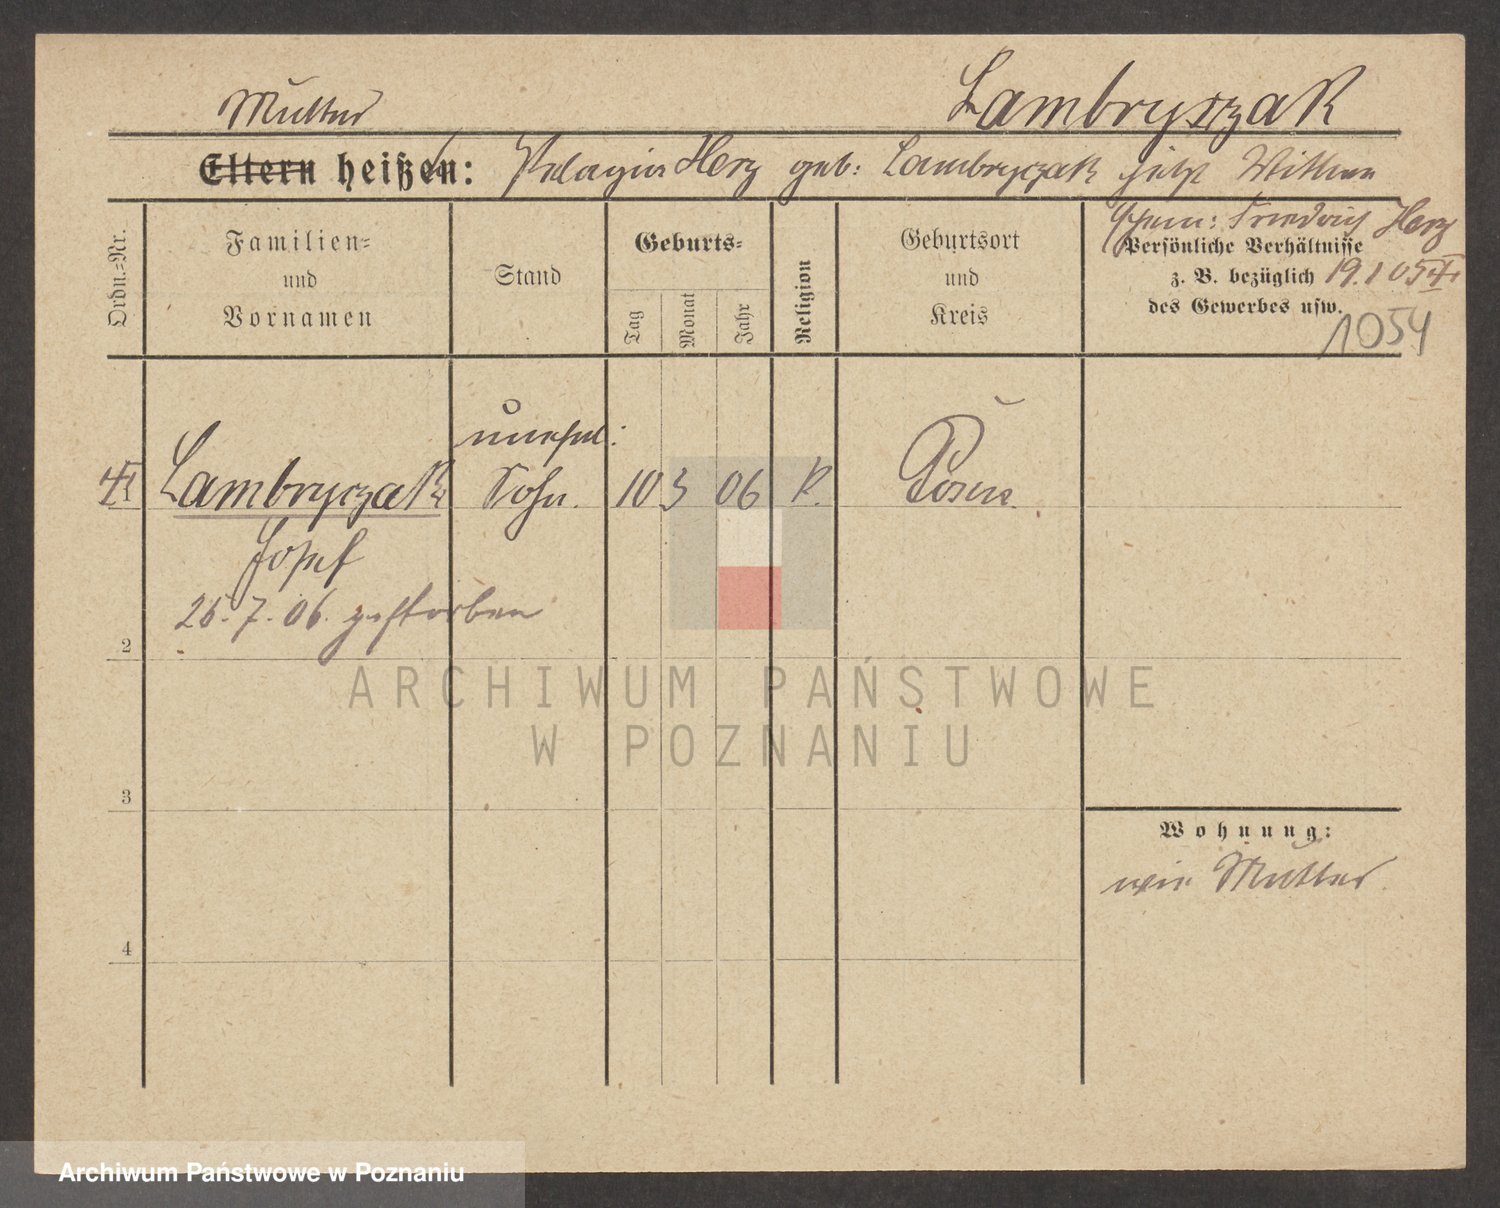 Lambryczak
Mutter
Eltern heißen: Pelagia Herz geb: Lambryczak jetzt Wittwe
Ehem: Friedrich Herz
19.1.05
1054
Ordn.=Nr.
Familien=
und
Vornamen
Stand
Geburts=
Tag
Monat
Jahr
Religion
Geburtsort
und
Kreis
Persönliche Verhältnisse
z. B. bezüglich
des Gewerbes usw.
unehel:
Lambryczak Sohn. 10 3 06 K. Posen
Josef
26.7.06. gestorben
2
3
4
Wohnung:
wie Mutter
ARCHIWUM PAŃSTWOWE
W POZNANIU
Archiwum Państwowe w Poznaniu